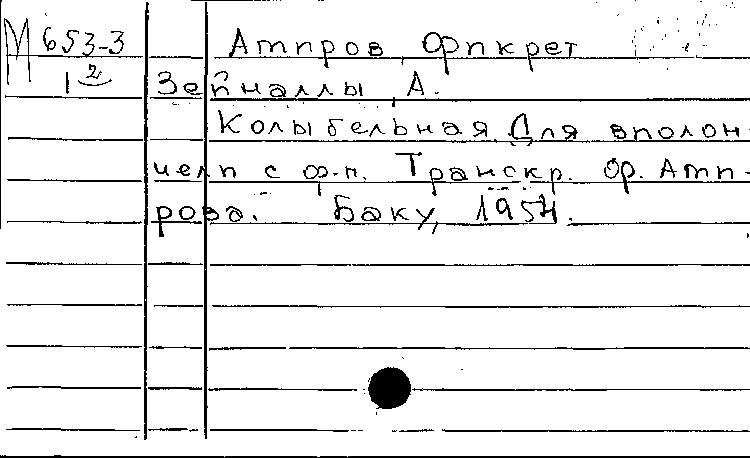 М 653-3 Амиров, Фикрет
1 2 Зейналлы, А.
Колыбельная. Для виолон-
чели с ф-п. Транскр. Ф. Ами-
рова. Баку, 1954.